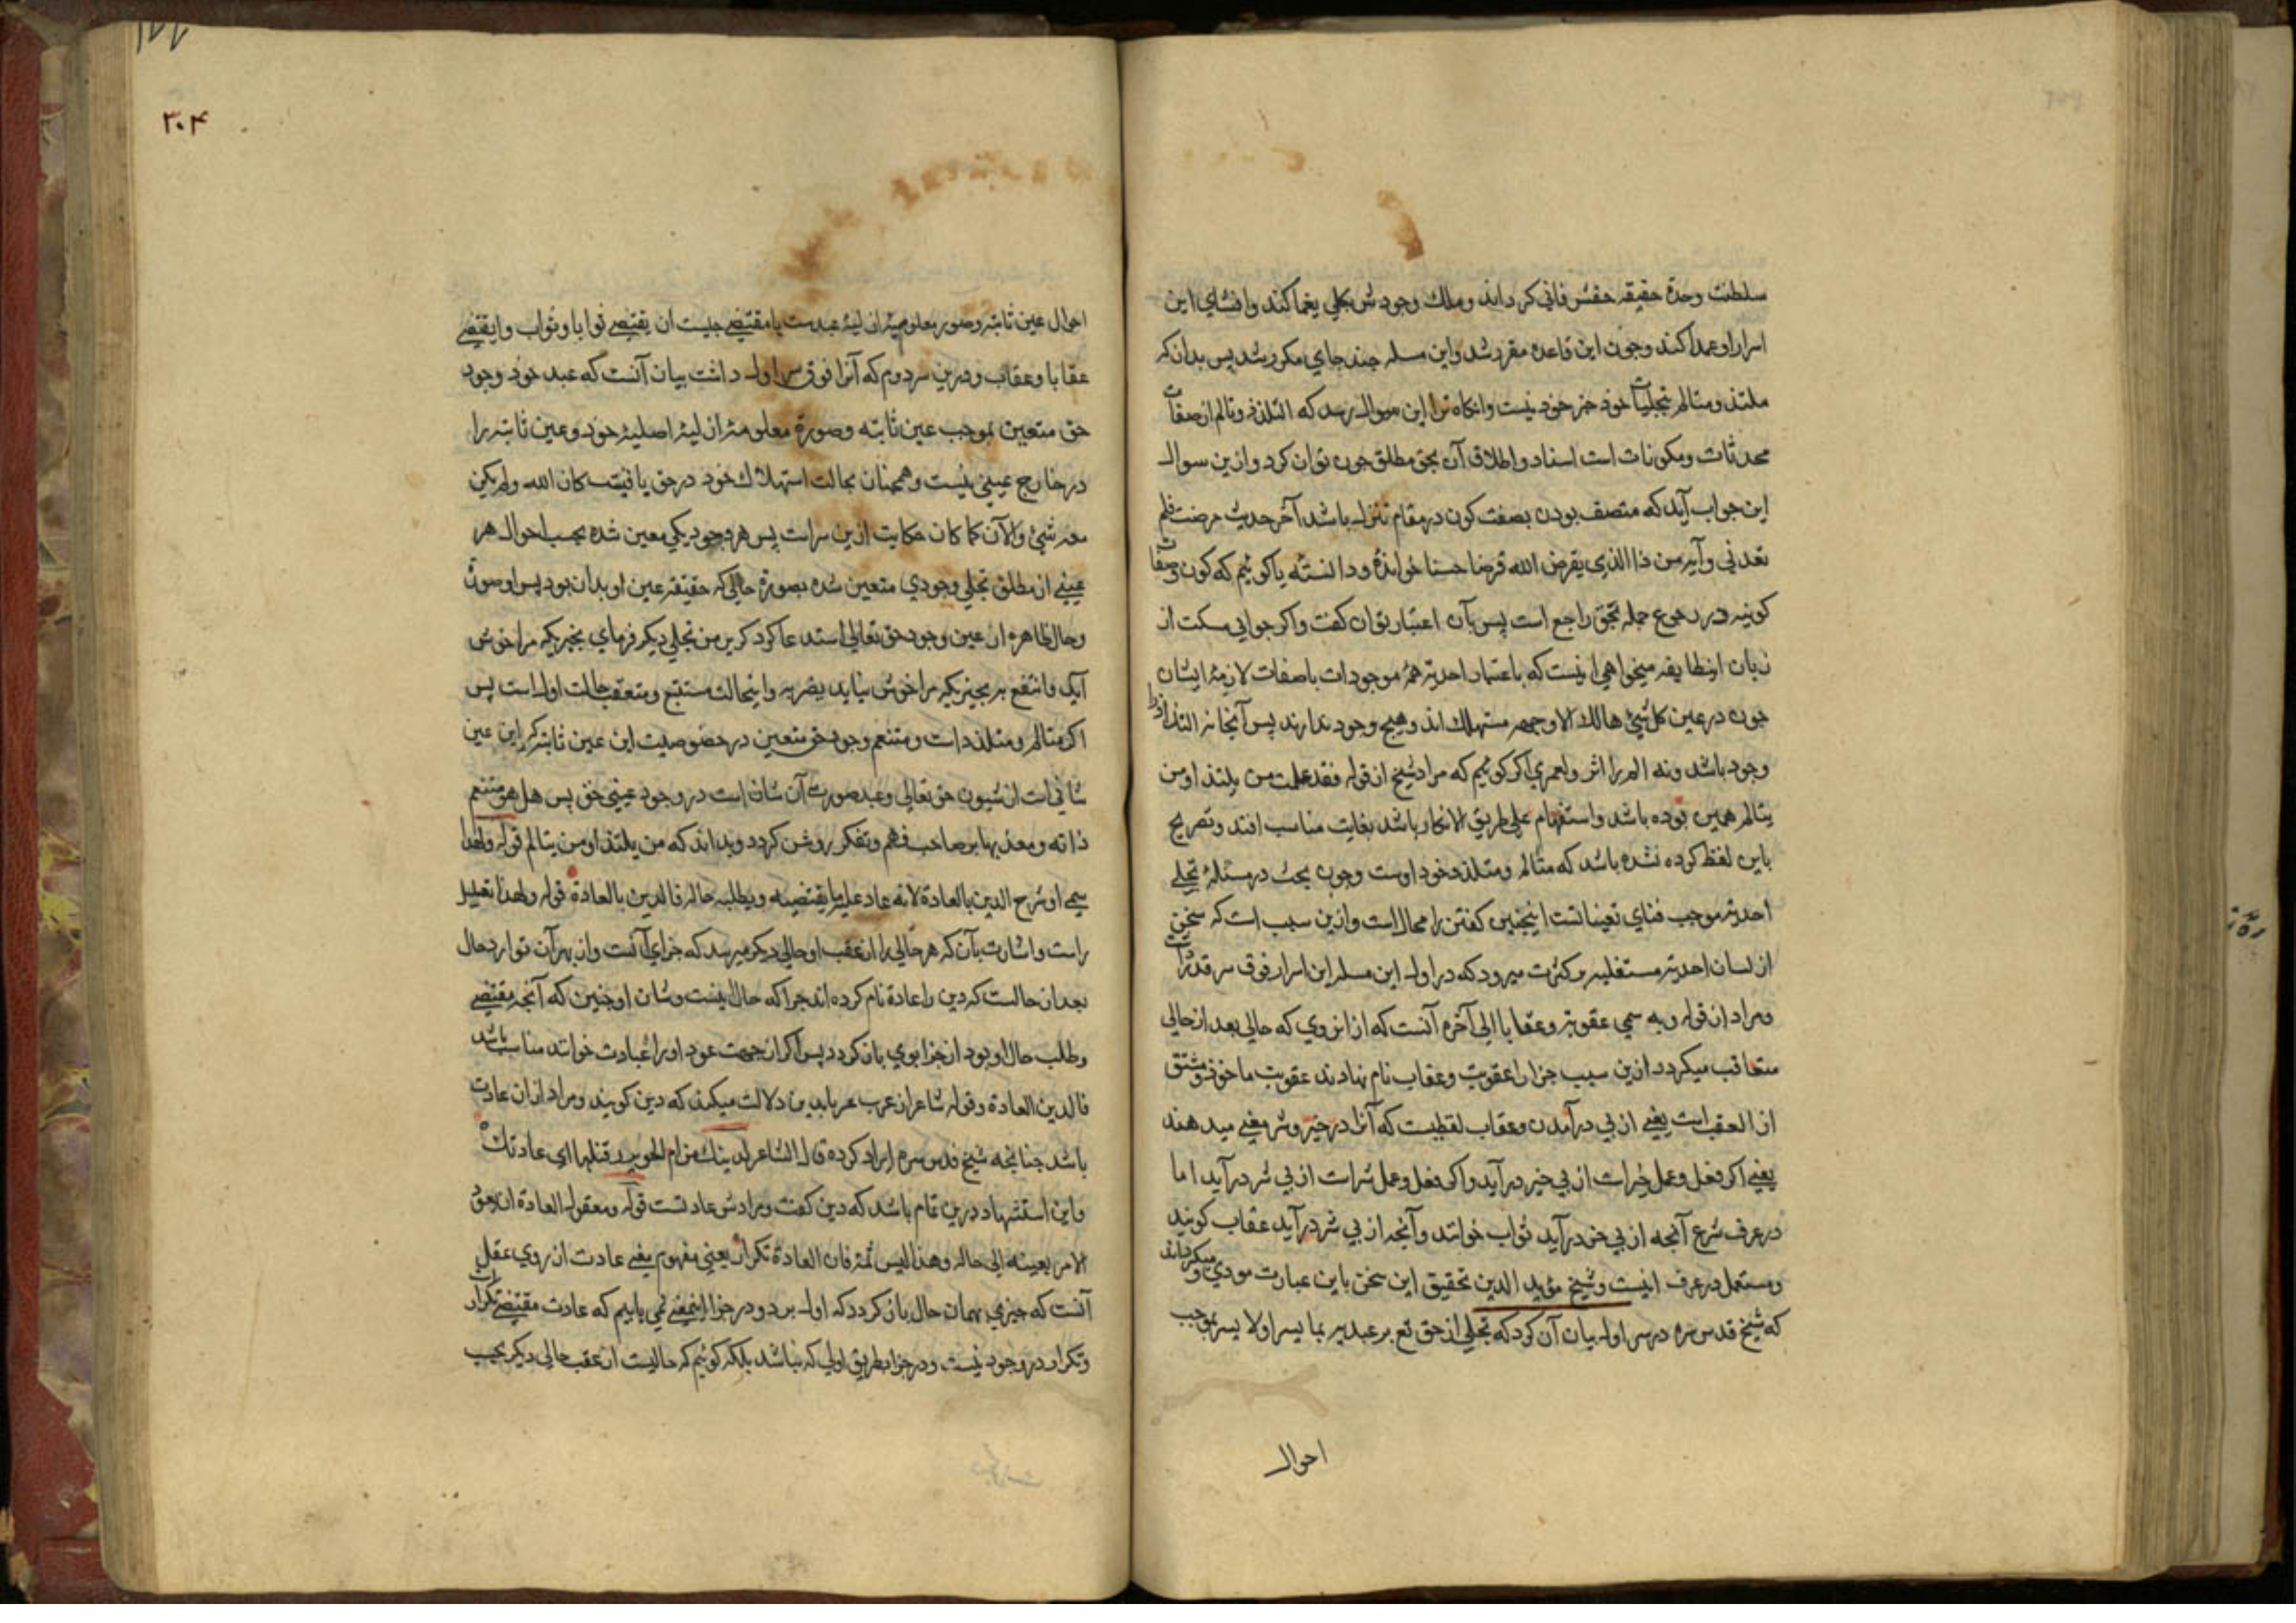 سلطنت وحدة حقیقه حقش فانی کرداند وملك وجودش بکلی یغما کند وافشای این
اسرار او عمدا کند وچون این قاعده مقرر شد واین مسله چند جای مکرر شد پس بدان که
ملتذ ومتالم بتجلیات خود جز خود نیست وانکاه ترا این سوال رسد که التلذذ وتالم از صفات
محدثات ومکونات است اسناد واطلاق آن بحق مطلق چون توان کرد وازین سوال
این جواب آید که متصف بودن بصفت کون در مقام تنزل باشد آخر حدیث مرضت فلم
تعدنی وآیه من ذا الذی یقرض الله قرضا حسنا خوانده ودانسته یا کوئیم که کون وصفات
کونیه در رجوع جمله بحق راجع است پس بآن اعتبار توان کفت واکر جوابی مسکت از
زبان این طایفه میخواهی اینست که باعتبار احدیة همه موجودات باصفات لازمهٔ ایشان
چون در عین کل شیئ هالك الا وجهه مستهلك اند وهیچ وجود ندارند پس آنجا نه التذاذ را
وجود باشد ونه الم را اثر ولعمری اکر کوئیم که مراد شیخ از قوله فقد علمت من یلتذ ومن
یتالم همین بوده باشد واستفهام علی طریق الانکار باشد بغایت مناسب افتد وتصریح
باین لفظ کرده نشده باشد که متالم ومتلذذ خود اوست وچون بحث در مسئلهٔ تجلی
احدیة موجب فنای تعیناتست اینچنین کفتن را محال است وازین سبب است که سخن
از لسان احدیة مستغلیه وکثرت میرود که در اول این مسله این اسرار فوق سر قدرات
ومراد از قوله وبه سمی عقوبة وعقابا الی آخره آنست که ازانروی که حالی بعد از حالی
متعاقب میکردد ازین سبب جزا را عقوبت وعقاب نام نهادند عقوبت ماخوذ ومشتق
از العقب است یعنی از پی درآمدن وعقاب لفظیست که آنرا در خیر وشر معنی میدهند
یعنی اکر فعل وعمل خیرات از پی خیر درآید واکر فعل وعمل شرات از پی شر درآید اما
در عرف شرع آنچه از پی خیر درآید ثواب خوانند وآنچه از پی شر درآید عقاب کویند
ومستعمل در عرف اینست وشیخ مؤید الدین تحقیق این سخن باین عبارت مودی میکرداند و
که شیخ قدس سره در سر اول بیان آن کرد که تجلی از حق تع بر عبد بر بما یسر او لا یسر بموجب
احوال
۳۰۴
احوال عین ثابته وصور معلومیه ازلیهٔ عبدست یا مقتضی چیست ان یقتضی ثوابا وثواب وان یقتضی
عقابا وعقاب ودرین سر دوم که آنرا فوق سر اول داشت بیان آنست که عبد خود وجود
حق متعین بموجب عین ثابته وصورة معلومیهٔ ازلیهٔ اصلیهٔ خود وعین ثابته را
در خارج عینی نیست وهمچنان بحالت استهلاك خود در حق باقیست کان الله ولم یکن
معه شیئ والآن کما کان حکایت ازین سر است پس هر وجود یکی معین شده بحسب احوال هر
عینی از مطلق تجلی وجودی متعین شده بصورة حالی که حقیقه عین او بدان بود پس او صورة
وحال ظاهره ان عین وجود حق تعالی استدعا کرد که بر من تجلی دیکر فرمای بچیزیکه مرا خوش
آید وانتفع به بچیزیکه مرا خوش نیاید بضربه واینحالت مستتبع ومتعقب حالت اول است پس
اکر متالم ومتلذذ است ومتنعم وجود حق متعین در خصوصیت این عین ثابته که این عین
شانی است از شیون حق تعالی وعبد صورت آن شان است در وجود عینی حق پس هل هو متنعم
ذاته ومعذبها بر صاحب فهم وتفکر روشن کردد وبداند که من یلتذ ومن یتالم قوله ولهذا
سمی او شرح الدین بالعادة لانه عاد علیه ما یقتضیه ویطلبه حاله فالدین بالعادة قوله ولهذا تعلیل
راست واشارت بآن که هر حالی را از عقب او حالی دیکر میرسد که جزای آنست وازبهر آن توارد حال
بعد از حالست که دین را عادة نام کرده اند چرا که حال نیست وشان او چنین که آنچه مقتضی
وطلب حال او بود از جزا بوی باز کردد پس اکر از جهت عود او را عبادت خوانند مناسب باشد
فالدین العادة وقوله شاعر از عرب عربا بدین دلالت میکند که دین کویند ومراد ازان عادت
باشد چنانچه شیخ قدس سره ایراد کرده قال الشاعر کدینك من ام الحویرث قبلها ای عادتك
واین استشهاد درین مقام باشد که دین کفت ومرادش عادتست قوله ومعقول العادة ان یعود
الامر بعینه الی حاله وهذا لیس ثمة فان العادة تکرار یعنی مفهوم یعنی عادت از روی عقل
آنست که چیزی بهمان حال باز کردد که اول بود ودر جزا اینمعنی نمی یابیم که عادت مقتضی تکرار است
وتکرار در وجود نیست ودر جزا بطریق اولی که نباشد بلکه کوئیم که حالیست از عقب حالی دیکر بحسب